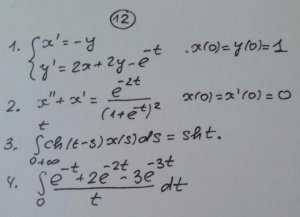 12
1. { x' = -y
y' = 2x + 2y - e^{-t} . x(0) = y(0) = 1
2. x'' + x' = e^{-2t} / (1 + e^{-t})^2 x(0) = x'(0) = 0
3. ∫_0^t ch(t-s) x(s) ds = sh t.
4. ∫_0^{+∞} (e^{-t} + 2e^{-2t} - 3e^{-3t}) / t dt